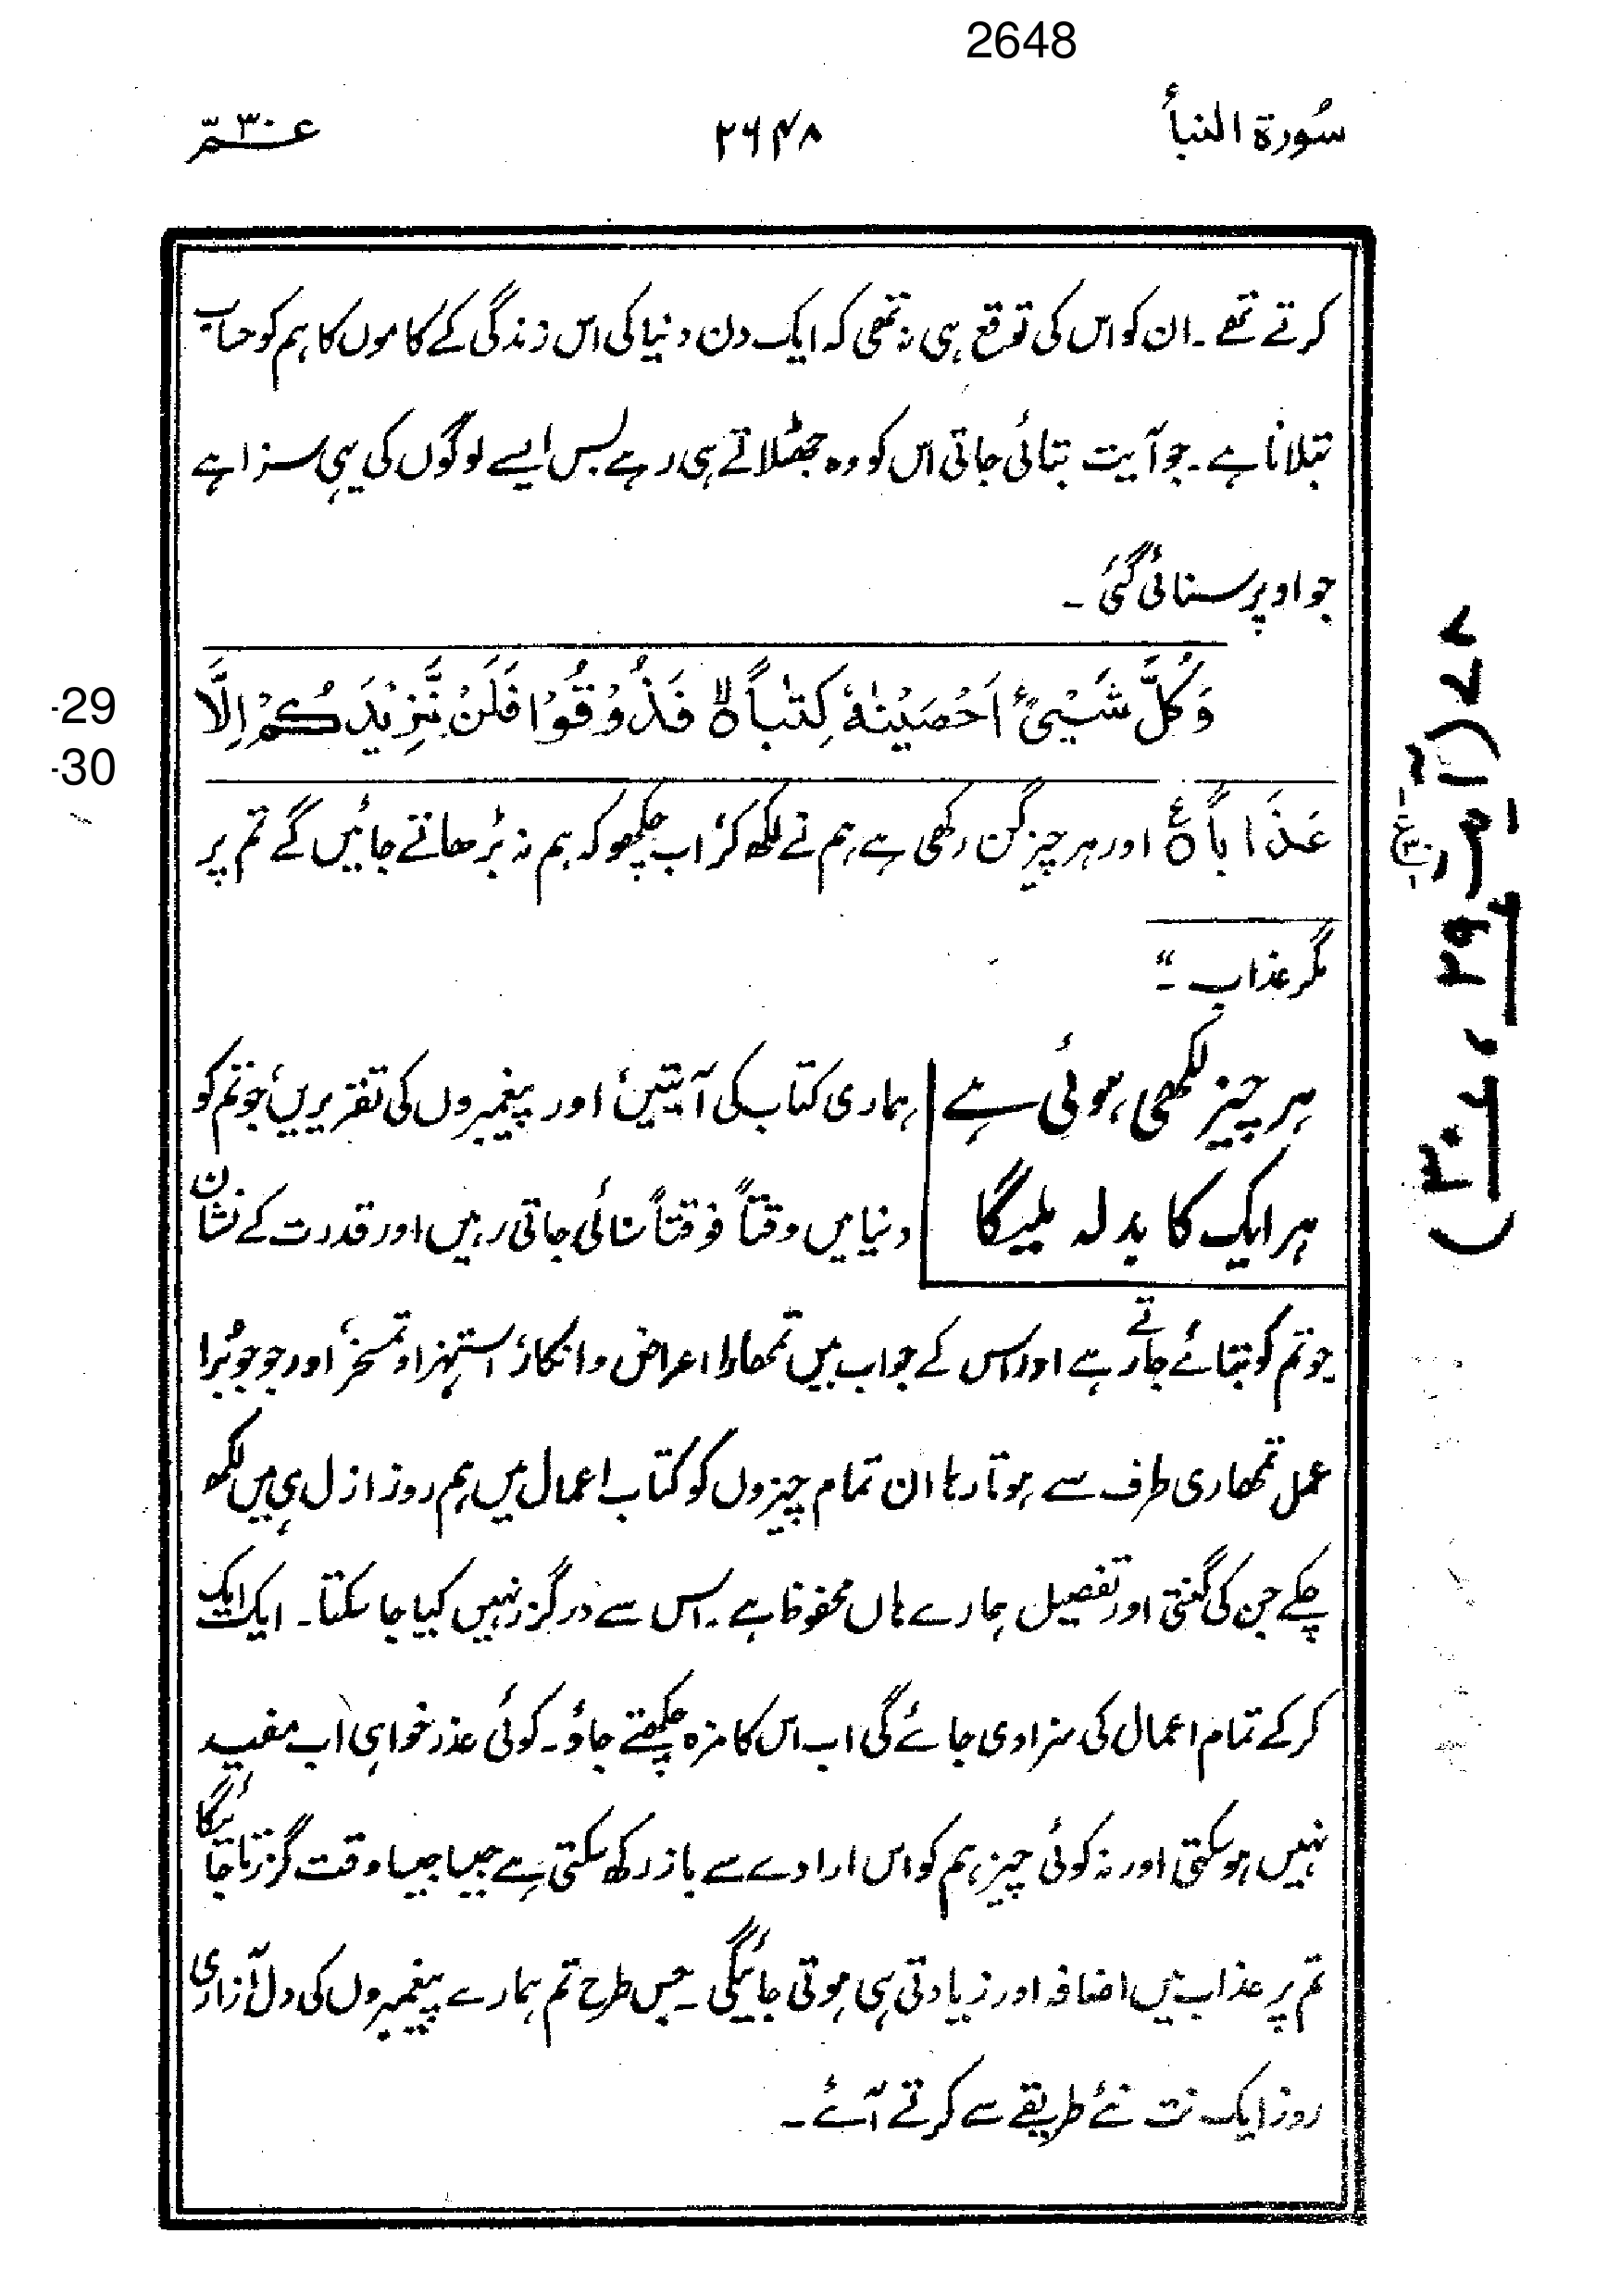 2648
سُورة النبأ
۲۶۴۸
عمّ ۳۰
کرتے تھے ۔ ان کو اس کی توقع ہی نہ تھی کہ ایک دن دنیا کی اس زندگی کے کاموں کا ہم کو حساب
بتلانا ہے ۔ جو آیت بتائی جاتی اس کو وہ جھٹلاتے ہی رہے بس ایسے لوگوں کی یہی سزا ہے
جو اوپر سنائی گئی ۔
-29
-30
وَكُلَّ شَیْیٍٔ اَحْصَیْنٰهُ کِتٰباًہ ۙ فَذُوْقُوْا فَلَنْ نَّزِیْدَکُمْ اِلَّا
عَذَاباًہ ع اور ہر چیز گن رکھی ہے ہم نے لکھ کر، اب چکھو کہ ہم نہ بڑھاتے جائیں گے تم پر
مگر عذاب ۔“
ہر چیز لکھی ہوئی ہے
ہر ایک کا بدلہ ملیگا
ہماری کتاب کی آیتیں اور پیغمبروں کی تقریریں جو تم کو
دنیا میں وقتاً فوقتاً سنائی جاتی رہیں اور قدرت کے نشان
جو تم کو بتائے جاتے رہے اور اس کے جواب میں تمھارا اعراض و انکار، استہزا و تمسخر، اور جو جو بُرا
عمل تمھاری طرف سے ہوتا رہا ان تمام چیزوں کو کتاب اعمال میں ہم روز ازل ہی میں لکھ
چکے جن کی گنتی اور تفصیل ہمارے ہاں محفوظ ہے ۔ اس سے درگزر نہیں کیا جا سکتا ۔ ایک ایک
کر کے تمام اعمال کی سزا دی جائے گی اب اس کا مزہ چکھتے جاؤ ۔ کوئی عذر خواہی اب مفید
نہیں ہو سکتی اور نہ کوئی چیز ہم کو اس ارادے سے باز رکھ سکتی ہے جیسا جیسا وقت گزرتا جائیگا
تم پر عذاب میں اضافہ اور زیادتی ہی ہوتی جائیگی ۔ جس طرح تم ہمارے پیغمبروں کی دل آزاری
روز ایک نت نئے طریقے سے کرتے آئے ۔
۷۸ (آیت ۲۹، ۳۰)